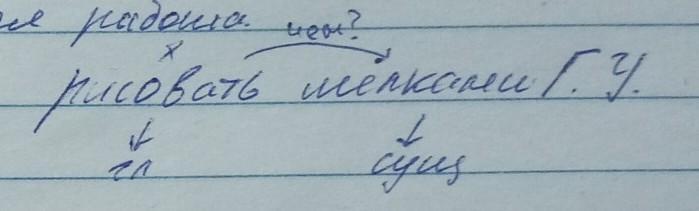 работа.
чем?
х
рисовать мелками Г. У.
гл сущ